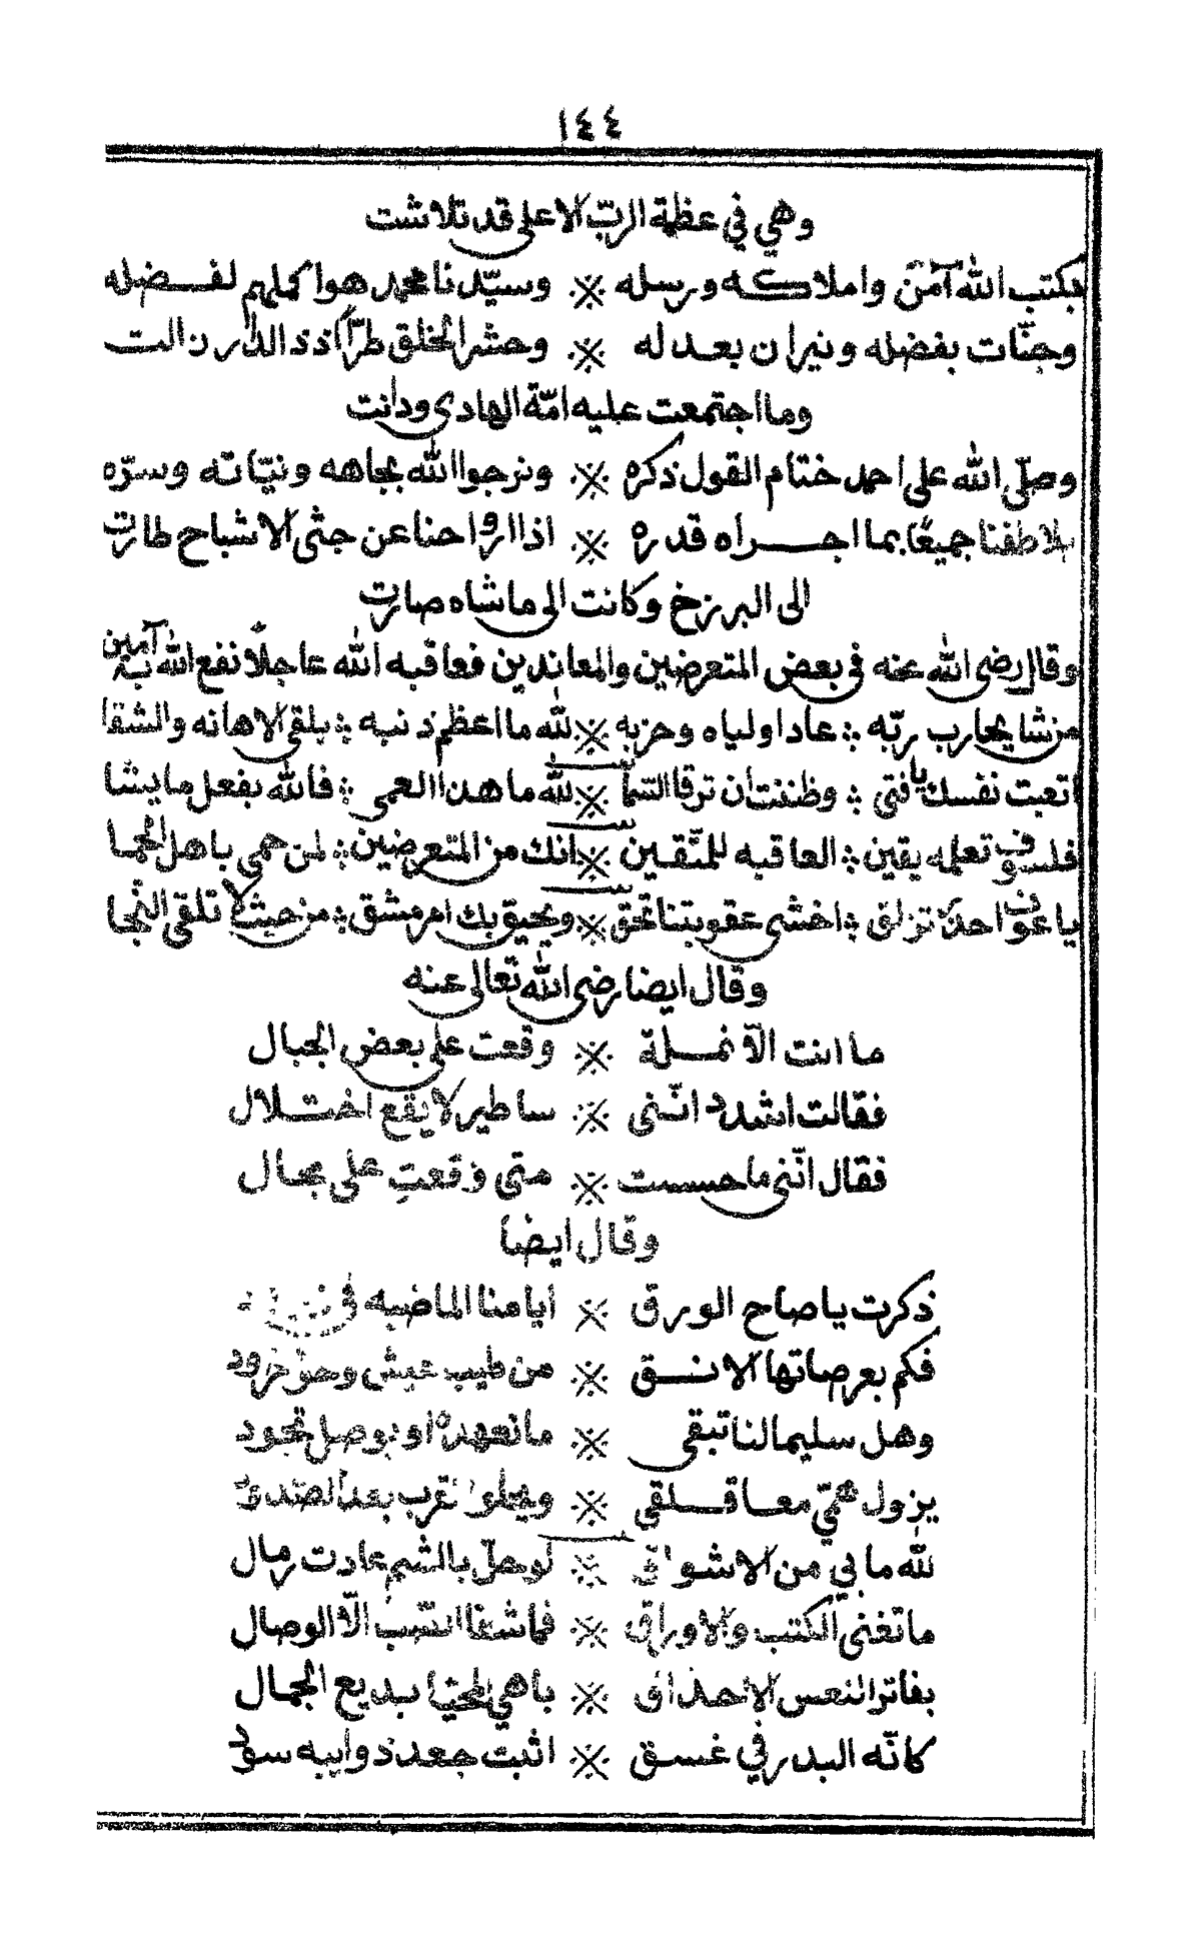 ١٤٤
وهي في عظمة الربّ الاعلى قد تلاشت
بكتب الله آمنّ واملاكه ورسله ※ وسيّدنا محمد هوا كملهم لفضله
وجنّات بفضله ونيران بعدله ※ وحشر الخلق طرّا
وما اجتمعت عليه امّة الهادى ودانت
وصلّى الله على احمد ختام القول ذكره ※ ونرجوا الله بجاهه ونيّاته وسرّه
يلاطفنا جميعًا بما اجراه قدره ※ اذا ارواحنا عن جثى الاشباح طارت
الى البرزخ وكانت الى ماشاه صارت
وقال رضى الله عنه فى بعض المتعرضين والمعاندين فعاقبه الله عاجلًا نفع الله به آمين
من شا يحارب ربّه ؞ عادا ولياه وحزبه ※ لله ما اعظم ذنبه ؞ يلقى الاهانه والشقا
اتعبت نفسك يا فتى ؞ وظننت ان ترقا السّما ※ لله ما هذا العمى ؞ فالله يفعل ما يشا
فلسوف تعلمه يقين ؞ العاقبه للمتّقين ※ انك من المتعرضين ؞ لمن حمى باهل الحما
ياعون احذر تزلق ؞ اخشى عقوبتنا تحق ※ ويحيق بك امر مشق ؞ من حيث لا تلقى النّجا
وقال ايضا رضى الله تعالى عنه
ما انت الّا نملة ※ وقعت على بعض الجبال
فقالت اشدد انّنى ※ ساطير لا يقع اختلال
فقال انّنى ما حسست ※ متى وقعتِ على بجال
وقال ايضا
ذكرت ياصاح الورق ※ ايامنا الماضيه في
فكم بعرصاتها الانق ※ من طيب عيش وحور خرود
وهل سليمالنا تبقى ※ مانعهده او بوصل تجود
يزول همّي معا قلقي ※ ويحلو القرب بعد الصّدود
لله ما بي من الاشواق ※ لوحلّ بالشم عادت رمال
ماتغنى الكتب والاوراق ※ فماشفا الصّب الّا الوصال
بفاتر النعس الاحذاق ※ باهي المحيّا بديع الجمال
كانّه البدر في غسق ※ اثبت جعد ذواييه سود